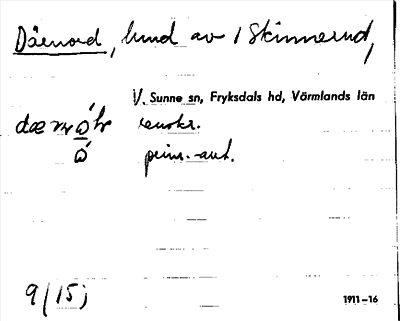 Däenord, hund av 1 Skinnerud,
V. Sunne sn, Fryksdals hd, Värmlands län
renskr.
prim.-ant.
9/15;
1911–16